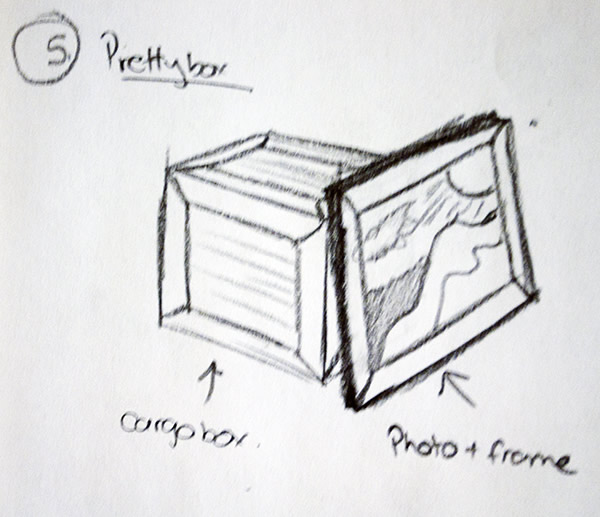 5. Prettybox
cargobox.
Photo + frame